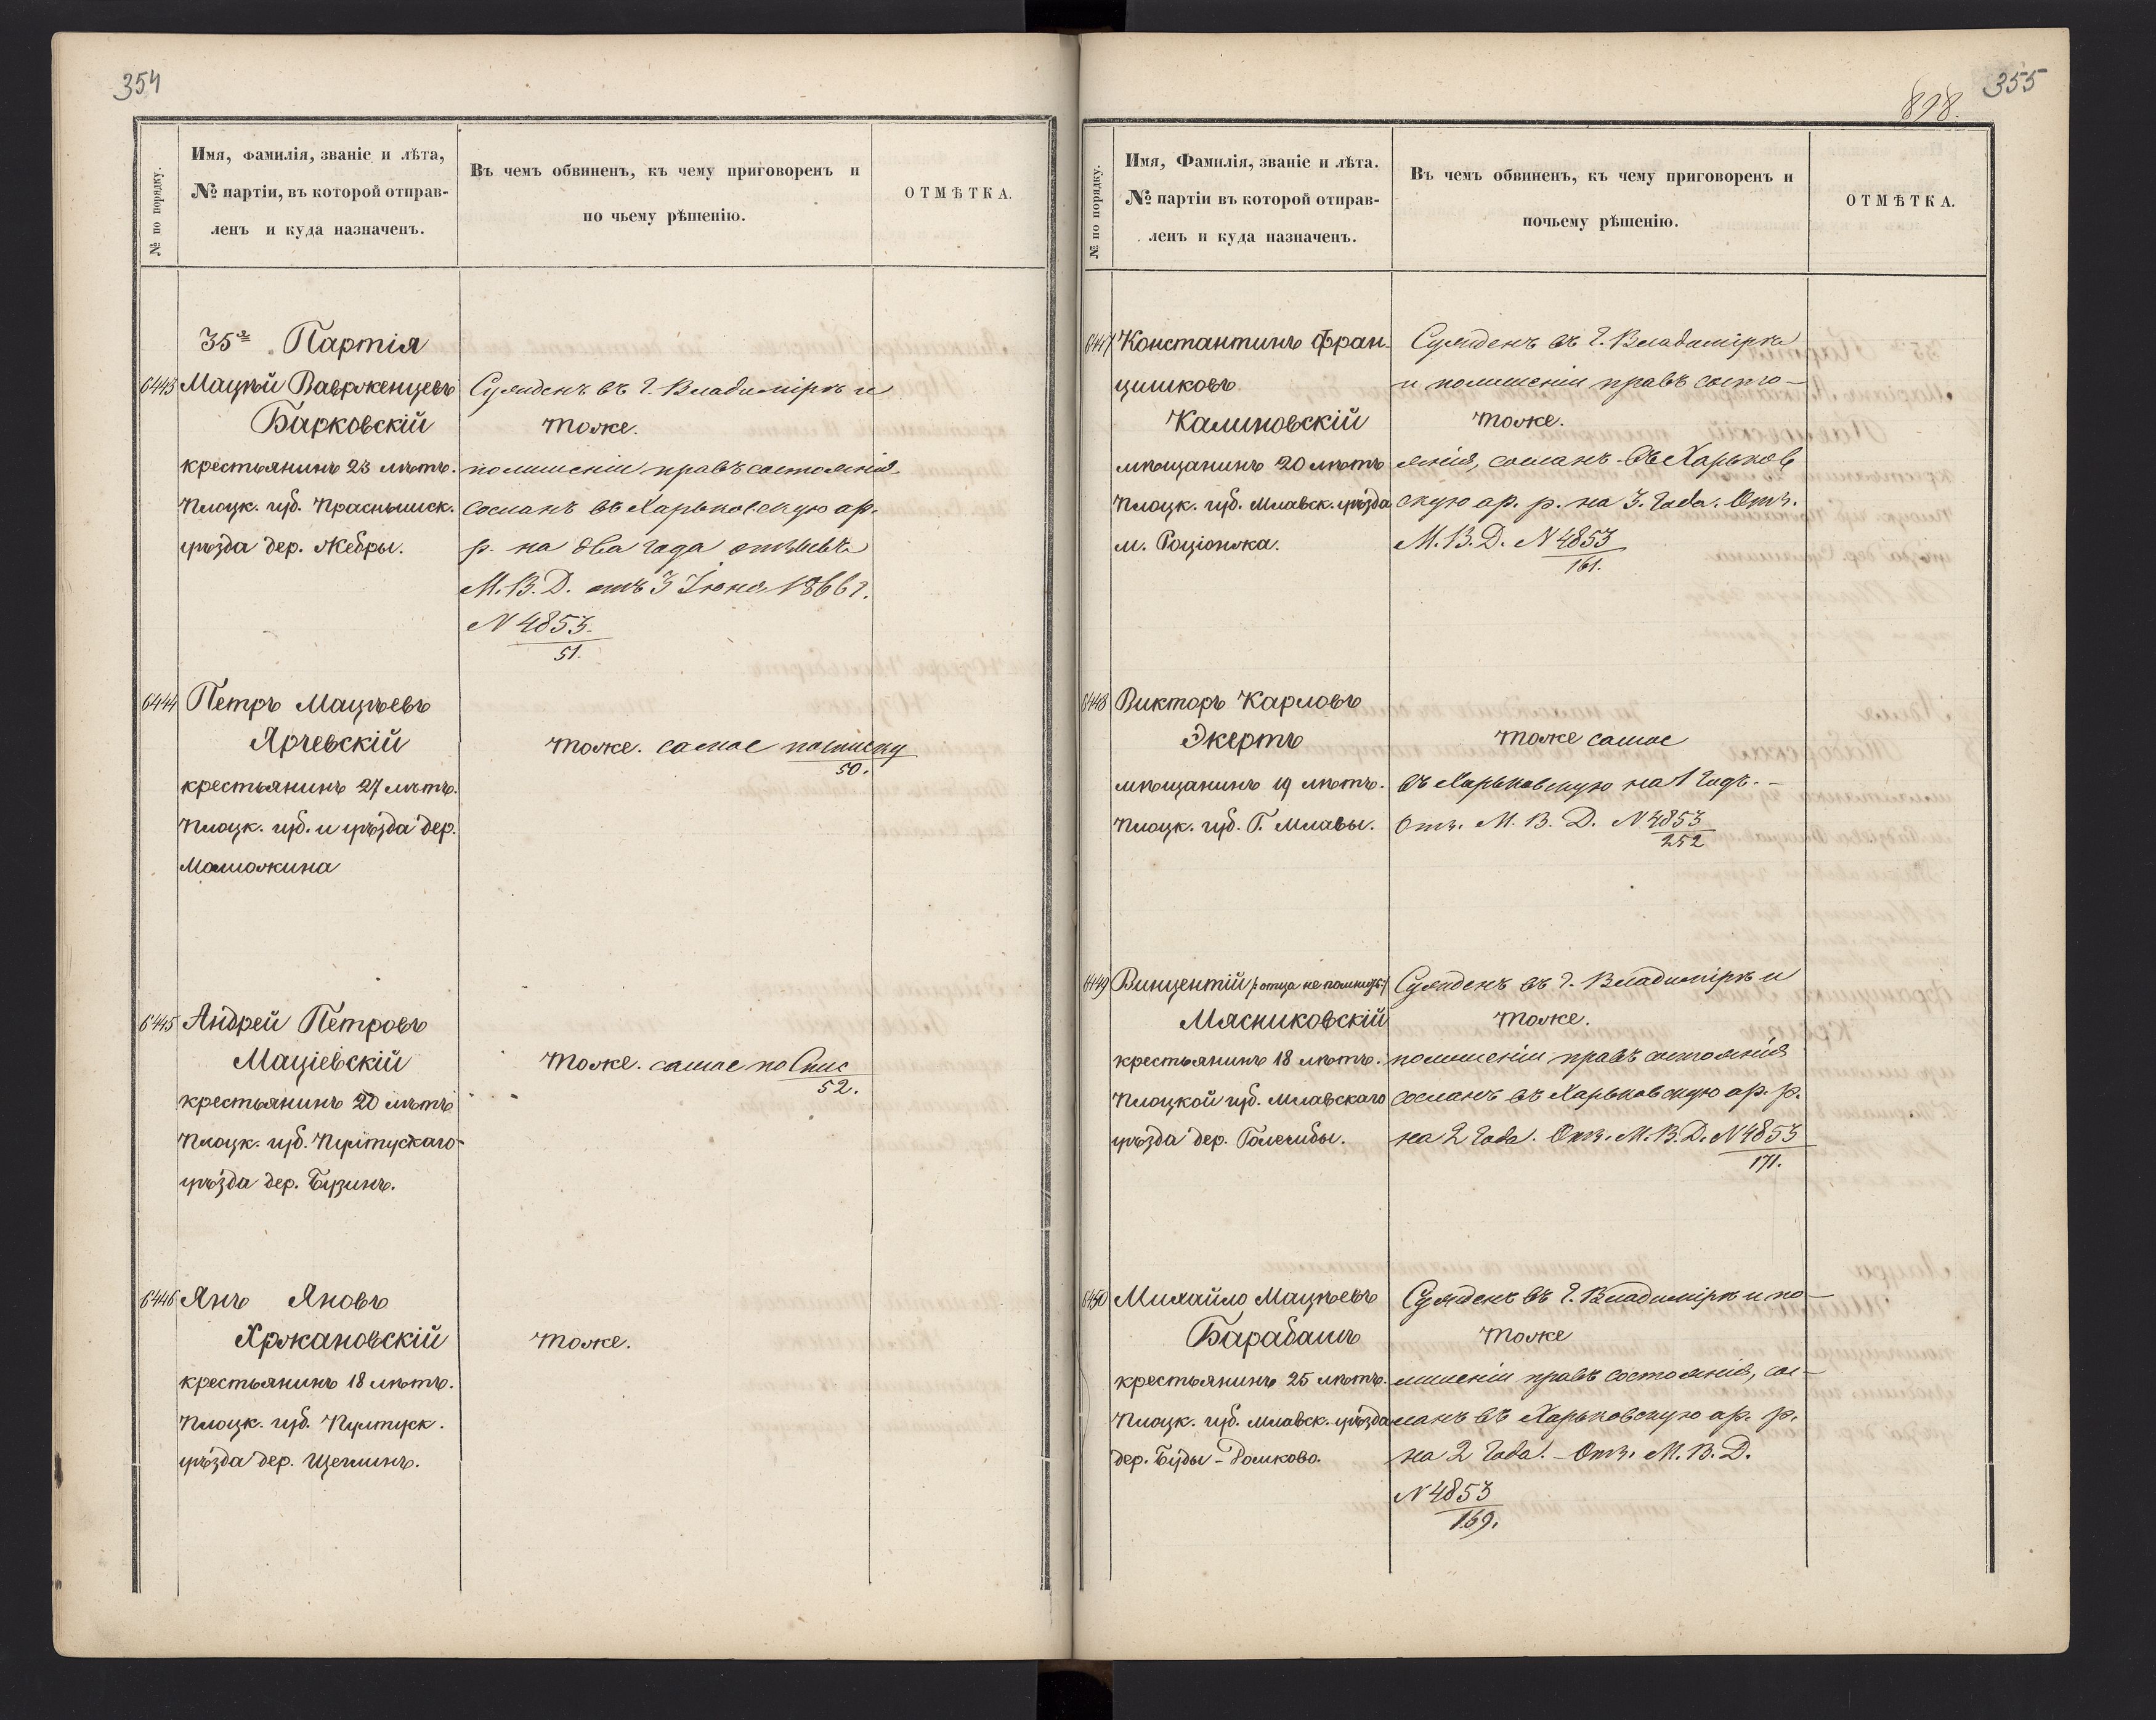 354
№ по порядку.
Имя, фамилія, званіе и лѣта,
№ партіи, въ которой отправ-
ленъ и куда назначенъ.
Въ чемъ обвиненъ, къ чему приговоренъ и
по чьему рѣшенію.
ОТМѢТКА.
35я Партія
6443 Мацѣй Вавржинцевъ
Барковскій
крестьянинъ 23 лѣтъ.
Плоцк. губ. Праснышск.
уѣзда дер. Жебры.
Сужденъ въ г. Владимірѣ и
Тоже.
по лишеніи правъ состоянія
сосланъ въ Харьковскую ар.
р. на два года отзывъ
М. В. Д. отъ 3 Іюня 1866 г.
N 4853.
51.
6444 Петръ Мацѣевъ
Ярчевскій
крестьянинъ 27 лѣтъ.
Плоцк. губ. и уѣзда дер.
Тоже. самое по списку
50.
6445 Андрей Петровъ
Маціевскій
крестьянинъ 20 лѣтъ
Плоцк. губ. Пултускаго
уѣзда дер. Бузинъ.
Тоже. самое по Спис
52.
6446 Янъ Яновъ
Хржановскій
крестьянинъ 18 лѣтъ.
Плоцк. губ. Пултуск.
уѣзда дер. Щеглинъ.
Тоже.
355
898.
№ по порядку.
Имя, Фамилія, званіе и лѣта.
№ партіи въ которой отправ-
ленъ и куда назначенъ.
Въ чемъ обвиненъ, къ чему приговоренъ и
почьему рѣшенію.
ОТМѢТКА.
6447 Константинъ Фран-
цишковъ
Калиновскій
мѣщанинъ 20 лѣтъ
Плоцк. губ. Млавск. уѣзда
м. Роціонжа.
Сужденъ въ г. Владимірѣ
и по лишеніи правъ состо-
Тоже.
янія, сосланъ въ Харьков
скую ар. р. на 3. года. Отз.
М. В. Д. N 4853
161.
6448 Викторъ Карловъ
Экертъ
мѣщанинъ 19 лѣтъ.
Плоцк. губ. Г. Млавы.
Тоже самое
въ Харьковскую на 1 годъ. -
Отз. М. В. Д. N 4853
252
6449 Винцентій /: отца не помнитъ :/
Мясниковскій
крестьянинъ 18 лѣтъ.
Плоцкой губ. Млавскаго
уѣзда дер.
Сужденъ въ г. Владимірѣ и
Тоже.
по лишеніи правъ состоянія
сосланъ въ Харьковскую ар. р.
на 2 года. Отз. М. В. Д. N 4853
171.
6450 Михайло Мацѣевъ
Барабашъ
крестьянинъ 25 лѣтъ.
Плоцк. губ. Млавск. уѣзда
дер. Буды-Волково.
Сужденъ въ г. Владимірѣ и по-
Тоже
лишеніи правъ состоянія, сос-
ланъ въ Харьковскую ар. р.
на 2 года. - Отз. М. В. Д.
N 4853
169.